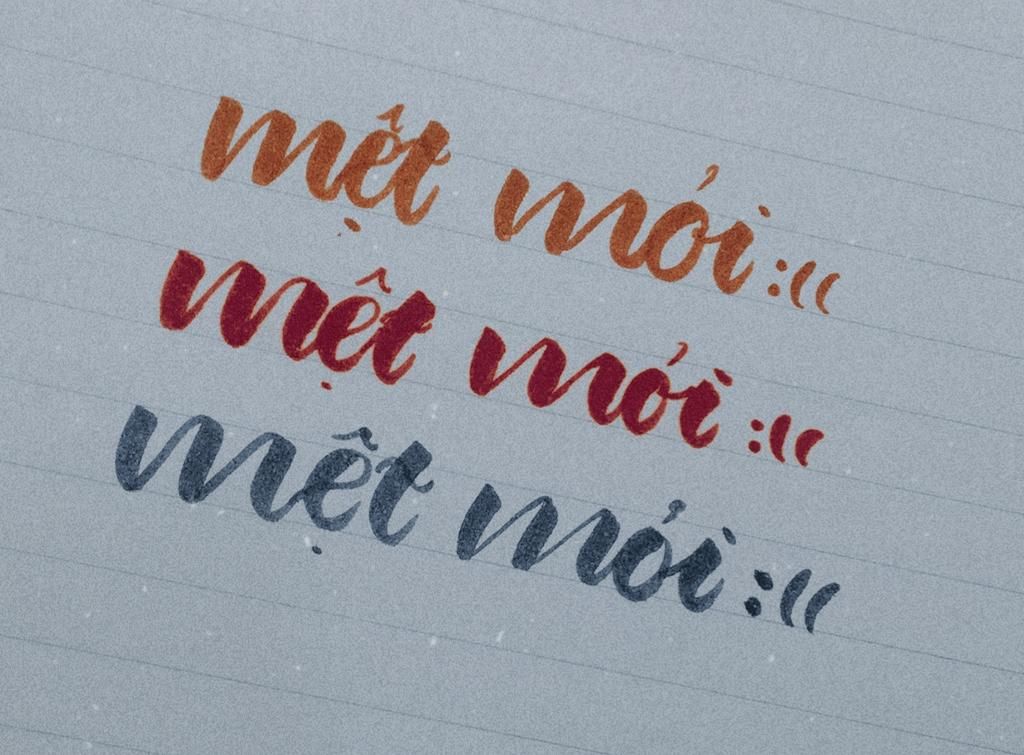 mệt mỏi :((
mệt mỏi :((
mệt mỏi :((